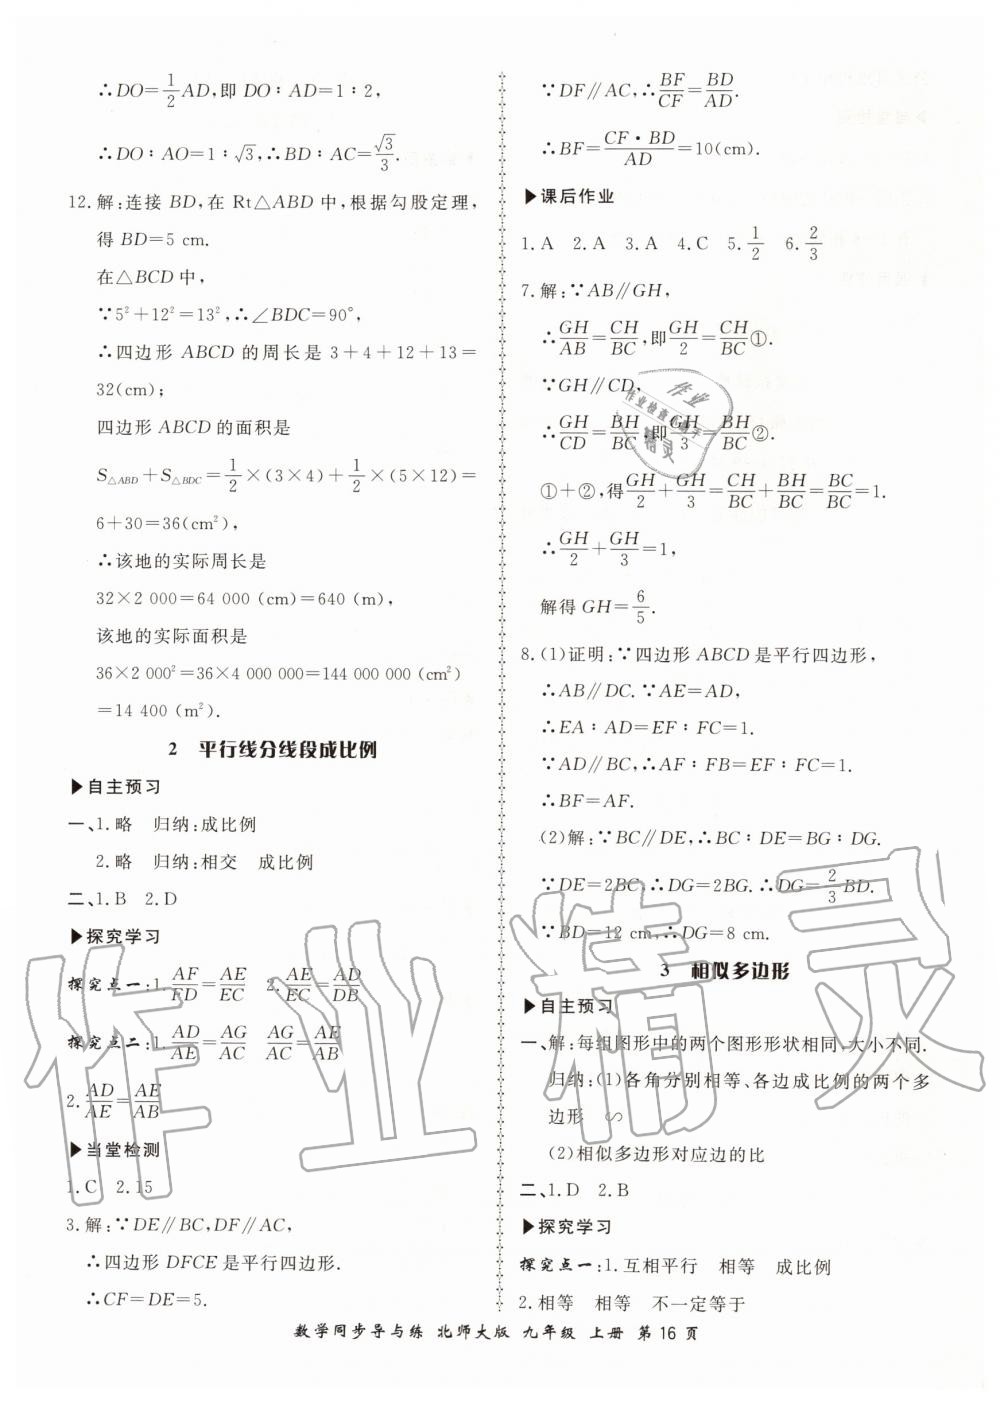 ∴DO=1/2 AD,即 DO∶AD=1∶2,
∴DO∶AO=1∶√3,∴BD∶AC=√3/3.
12.解:连接 BD,在 Rt△ABD 中,根据勾股定理,
得 BD=5 cm.
在△BCD 中,
∵5²+12²=13²,∴∠BDC=90°,
∴四边形 ABCD 的周长是 3+4+12+13=
32(cm);
四边形 ABCD 的面积是
S△ABD+S△BDC=1/2×(3×4)+1/2×(5×12)=
6+30=36(cm²),
∴该地的实际周长是
32×2 000=64 000 (cm)=640 (m),
该地的实际面积是
36×2 000²=36×4 000 000=144 000 000(cm²)
=14 400 (m²).
2 平行线分线段成比例
▶自主预习
一、1.略 归纳:成比例
2.略 归纳:相交 成比例
二、1.B 2.D
▶探究学习
探究点一:1.AF/FD=AE/EC 2.AE/EC=AD/DB
探究点二:1.AD/AE=AG/AC AG/AC=AE/AB
2.AD/AE=AE/AB
▶当堂检测
1.C 2.15
3.解:∵DE∥BC,DF∥AC,
∴四边形 DFCE 是平行四边形.
∴CF=DE=5.
∵DF∥AC,∴BF/CF=BD/AD.
∴BF=CF·BD/AD=10(cm).
▶课后作业
1.A 2.A 3.A 4.C 5.1/2 6.2/3
7.解:∵AB∥GH,
∴GH/AB=CH/BC,即GH/2=CH/BC①.
∵GH∥CD,
∴GH/CD=BH/BC,即GH/3=BH/BC②.
①+②,得GH/2+GH/3=CH/BC+BH/BC=BC/BC=1.
∴GH/2+GH/3=1,
解得 GH=6/5.
8.(1)证明:∵四边形 ABCD 是平行四边形,
∴AB∥DC.∵AE=AD,
∴EA∶AD=EF∶FC=1.
∵AD∥BC,∴AF∶FB=EF∶FC=1.
∴BF=AF.
(2)解:∵BC∥DE,∴BC∶DE=BG∶DG.
∵DE=2BC,∴DG=2BG.∴DG=2/3 BD.
∵BD=12 cm,∴DG=8 cm.
3 相似多边形
▶自主预习
一、解:每组图形中的两个图形形状相同,大小不同.
归纳:(1)各角分别相等、各边成比例的两个多
边形 ∽
(2)相似多边形对应边的比
二、1.D 2.B
▶探究学习
探究点一:1.互相平行 相等 成比例
2.相等 相等 不一定等于
数学同步导与练 北师大版 九年级 上册 第16页
作业精灵